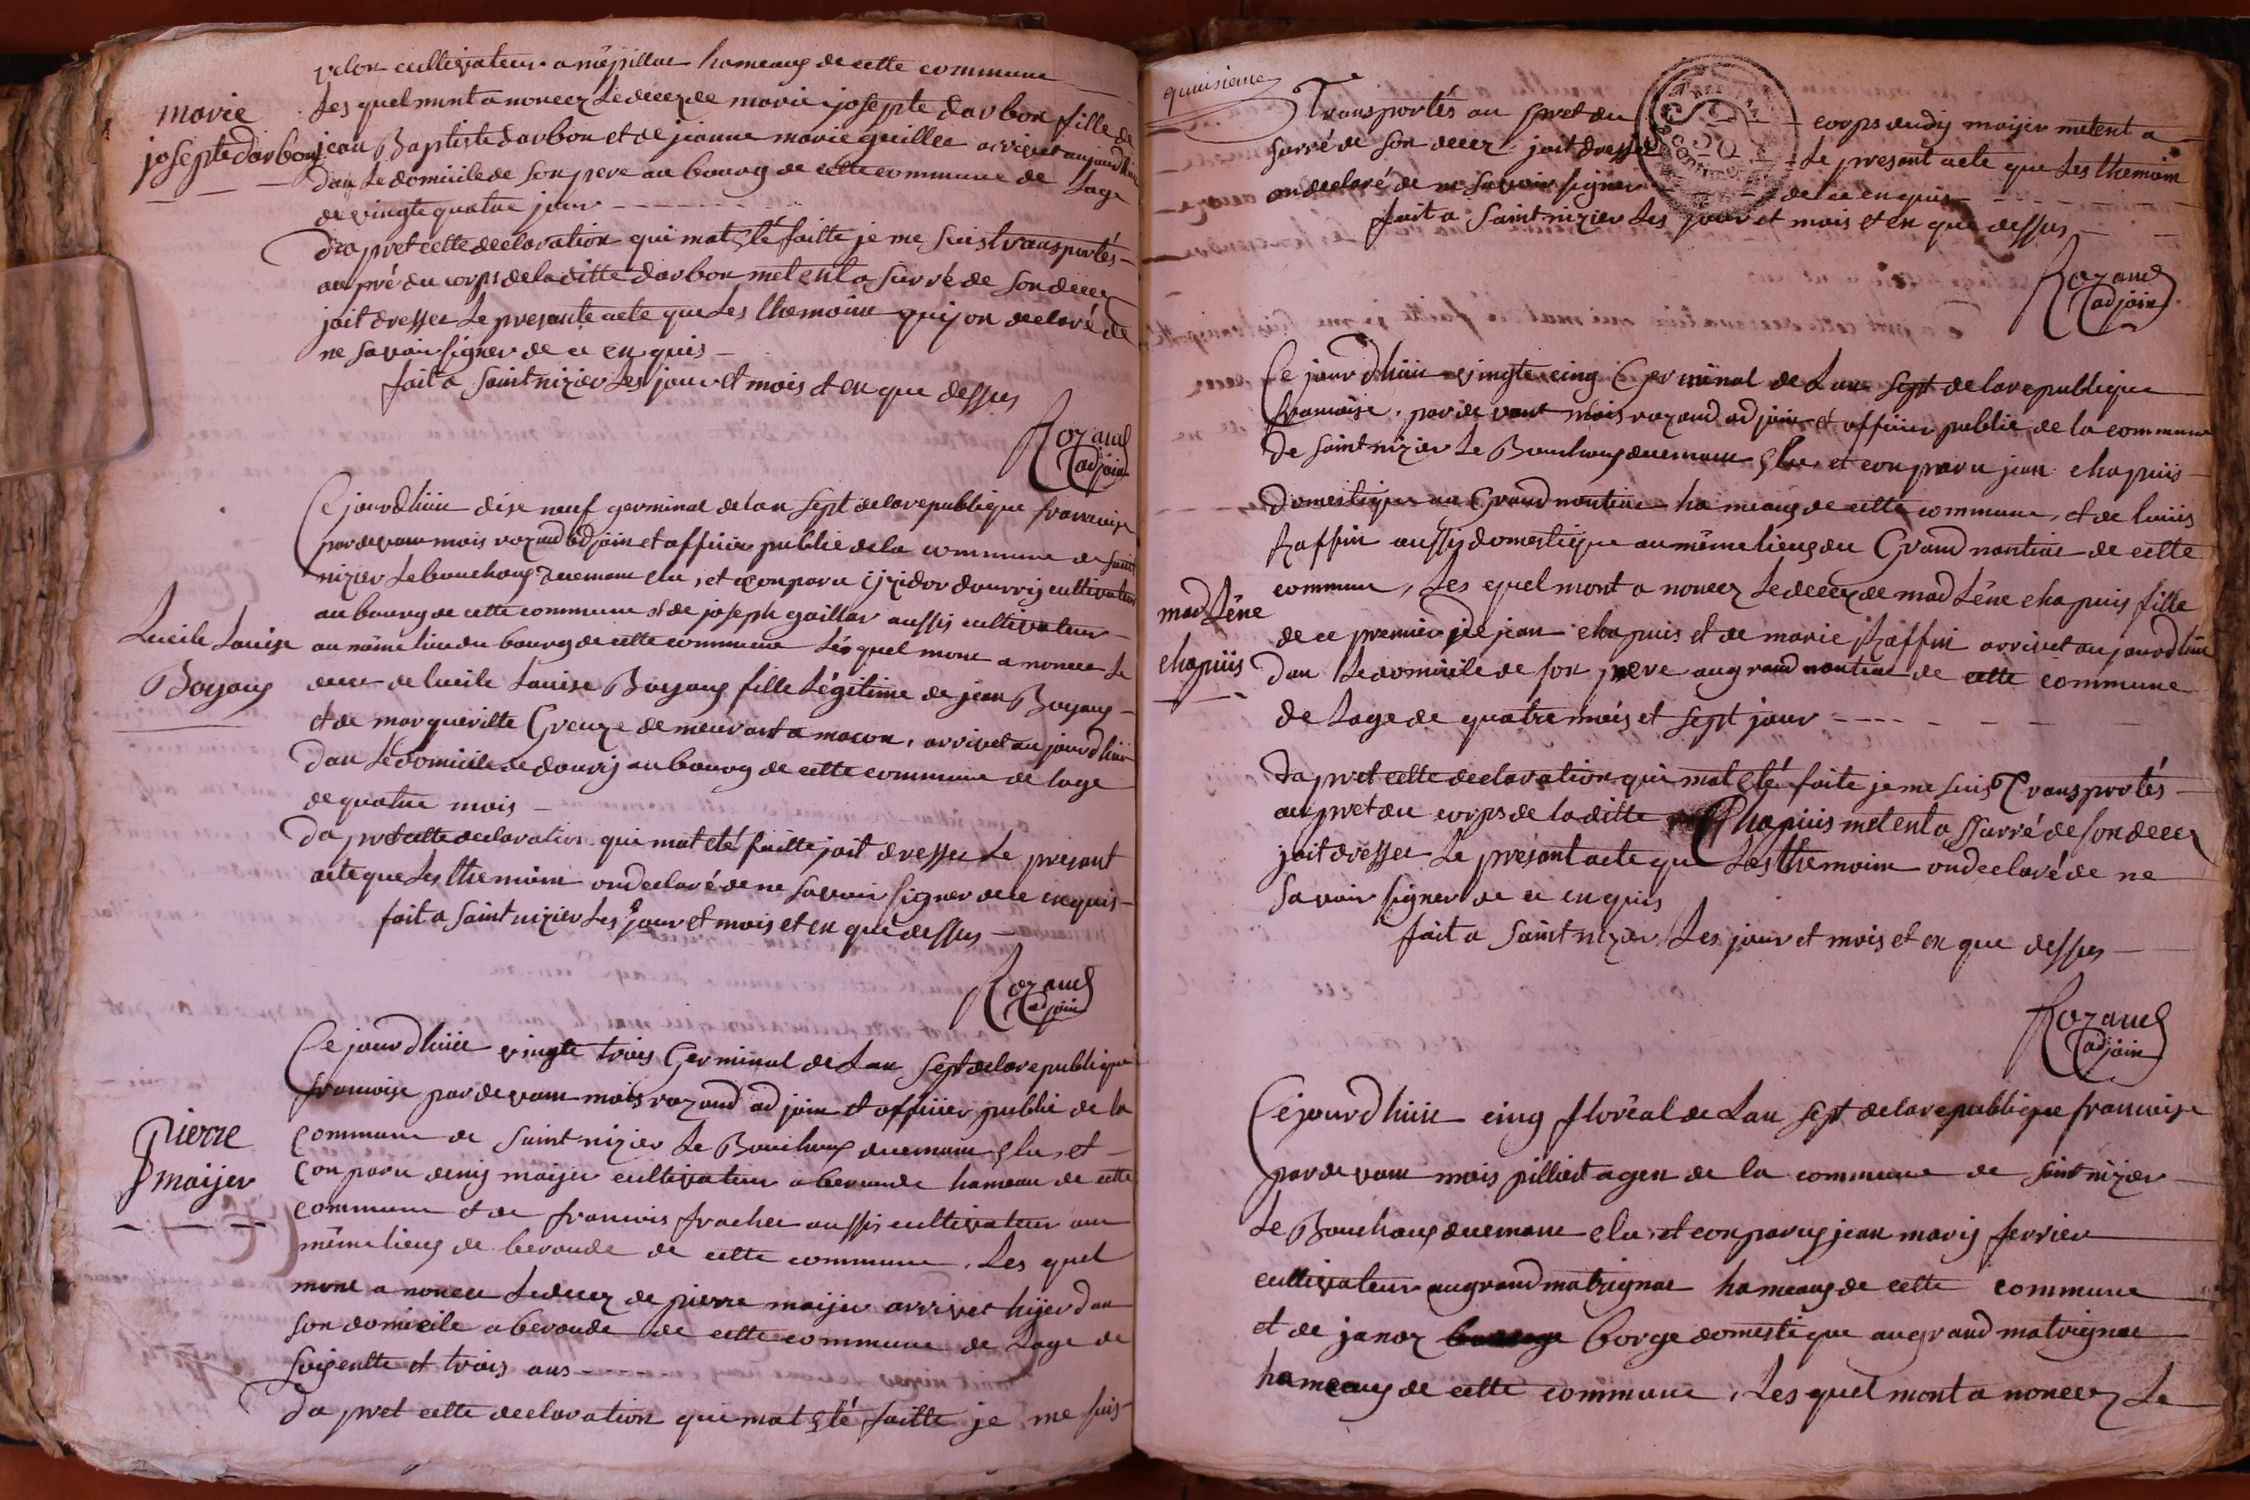 velon cultivateur a népillat hameaux de cette commune
marie
josepte darbon
Les quel mint a noncez Le decez de marie josepte darbon fille de
jean Baptiste darbon et de jeanne marie guillee arrivet aujourdhui
dan Le domicile de son pere au bourg de cette commune de Lage
de vingte quatre jour
da pret cette declaration qui mat eté faitte je me suis transportés
au pré du corps de la ditte darbon met ent a surré de son decez
jait dresser Le presante acte que Les themoin qui on declaré de
ne savoir signer de ce enquis
fait a saint nizier Les jour et mois et en que dessus
Rozand
adjoin
Ce jourdhuie dixe neuf germinal de lan sept de la republique francoise
par devam mois rozand adjoin et officier public de la commune de saint
nizier Le bouchoux duemam elu, et conparu izidor dourrij cultivateur
au bourg de cette commune et de joseph gaillar aussis cultivateur
Lucile Louise
Boyaux
au même lieu du bourg de cette commune Les quel mont a noncee Le
decee de lucile Louise Boyaux fille Légitime de jean Boyaux
et de marguerilte Greuze de meurant a macon, arrivet au jourdhui
dan Le domicile de dourij au bourg de cette commune de lage
de quatre mois
da pret cette declaration qui mat eté faitte jait dresser Le presant
acte que Les themoin ond declaré de ne savoir signer de ce enquis
fait a saint nizier Les jour et mois et en que dessus
Rozand
adjoin
Ce jourdhuie vingte trois Germinal de Lan sept de la republique
francoise par devam mois rozand ad join et officier public de la
Pierre
maijer
commune de saint nizier Le Bouchoux duemam elu, et
conparu denij maijer cultivateur a beronde hameau de cette
commune et de francois frachee aussis cultivateur au
même lieux de beronde de cette commune, Les quel
mont a noncee Le decez de pierre maijer arrivet hijer dan
son domicile a beronde de cette commune de Lage de
soixentte et trois ans
da pret cette declaration qui mat eté faitte je me suis
quinsieme
Transportés au pret du corps dudij maijer met ent a
surré de son decez jait dresser Le presant acte que Les themoin
on declaré de ne savoir signer de ce enquis
fait a saint nizier Les jour et mois et en que dessus
Rozand
adjoin
Ce jourdhuie vingte cinq Germinal de Lan sept de la republique
francoise, par de vant mois rozand ad join et officier public de la commune
de saint nizier Le Bouchoux duemam elu, et conparu jean chapuis
domestique au Grand nontine hameaux de cette commune, et de luiis
Raffin aussy domestique au même lieux du Grand nontine de cette
commune, Les quel mont a noncez Le decez de mad Léne chapuis fille
madLéne
chapuis
de ce premier de jean chapuis et de marie Raffin arrivet au jourdhui
dan Le domicile de son pere au grand nontine de cette commune
de Lage de quatre mois et sept jour
da pret cette declaration qui mat eté faite je me suis Transportés
au pret du corps de la ditte Chapuis met ent a ssurré de son decez
jait dresser Le présant acte que Les themoin ond declaré de ne
savoir signer de ce enquis
fait a saint nizier Les jour et mois et en que dessus
Rozand
adjoin
Ce jourdhuie cinq floréal de Lan sept de la republique francoise
par de vam mois pilliat agen de la commune de saint nizier
Le Bouchoux duemam elu et conparuij jean marij ferrier
cultivateur au grand matrignat hameaux de cette commune
et de janoz borge domestique au grand matrignat
hameaux de cette commune, Les quel mont a noncez Le